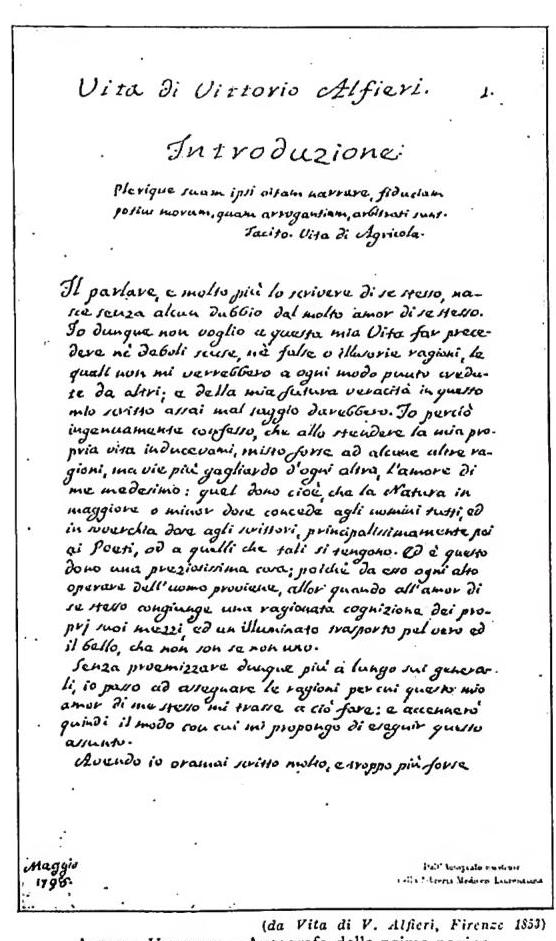 Vita di Vittorio Alfieri. 1.
Introduzione.
Plerique suam ipsi vitam narrare, fiduciam
potius morum, quam arrogantiam, arbitrati sunt.
Tacito. Vita di Agricola.
Il parlare, e molto più lo scrivere di se stesso, na-
sce senza alcun dubbio dal molto amor di se stesso.
Io dunque non voglio a questa mia Vita far prece-
dere nè deboli scuse, nè false o illusorie ragioni, le
quali non mi verrebbero a ogni modo punto credu-
te da altri; e della mia futura veracità in questo
mio scritto assai mal saggio darebbero. Io perciò
ingenuamente confesso, che allo stendere la mia pro-
pria vita inducevami, misto forse ad alcune altre ra-
gioni, ma vie più gagliardo d'ogni altra, l'amore di
me medesimo: quel dono cioè, che la Natura in
maggiore o minor dose concede agli uomini tutti, ed
in soverchia dose agli scrittori, principalissimamente poi
ai Poeti, od a quelli che tali si tengono. Ed è questo
dono una preziosissima cosa; poichè da esso ogni alto
operare dell'uomo proviene, allor quando all'amor di
se stesso congiunge una ragionata cognizione dei pro-
prj suoi mezzi, ed un illuminato trasporto pel vero ed
il bello, che non son se non uno.
Senza proemizzare dunque più a lungo sui genera-
li, io passo ad assegnare le ragioni per cui questo mio
amor di me stesso mi trasse a ciò fare: e accennerò
quindi il modo con cui mi propongo di eseguir questo
assunto.
Avendo io oramai scritto molto, e troppo più forse
Maggio
179
Dall' Autografo
nella Libreria Mediceo Laurenziana
(da Vita di V. Alfieri, Firenze 1853)